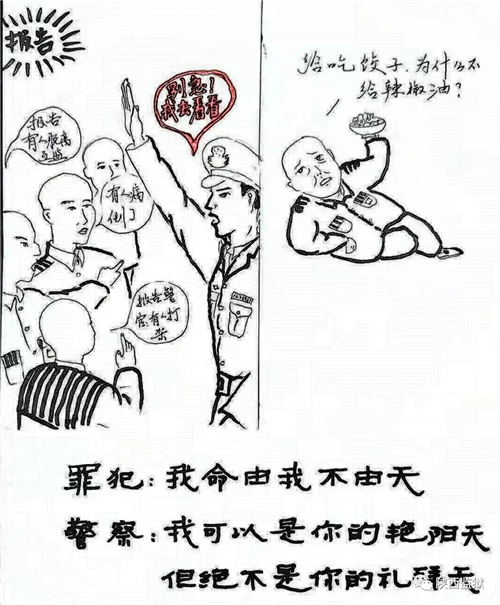 报告
别急!
我去看看
报告
有人脱离
互监
有人病
倒了
报告警
官有人打
架
给吃饺子,为什么不
给辣椒油?
罪犯:我命由我不由天
警察:我可以是你的艳阳天
但绝不是你的礼拜天
陕西监狱